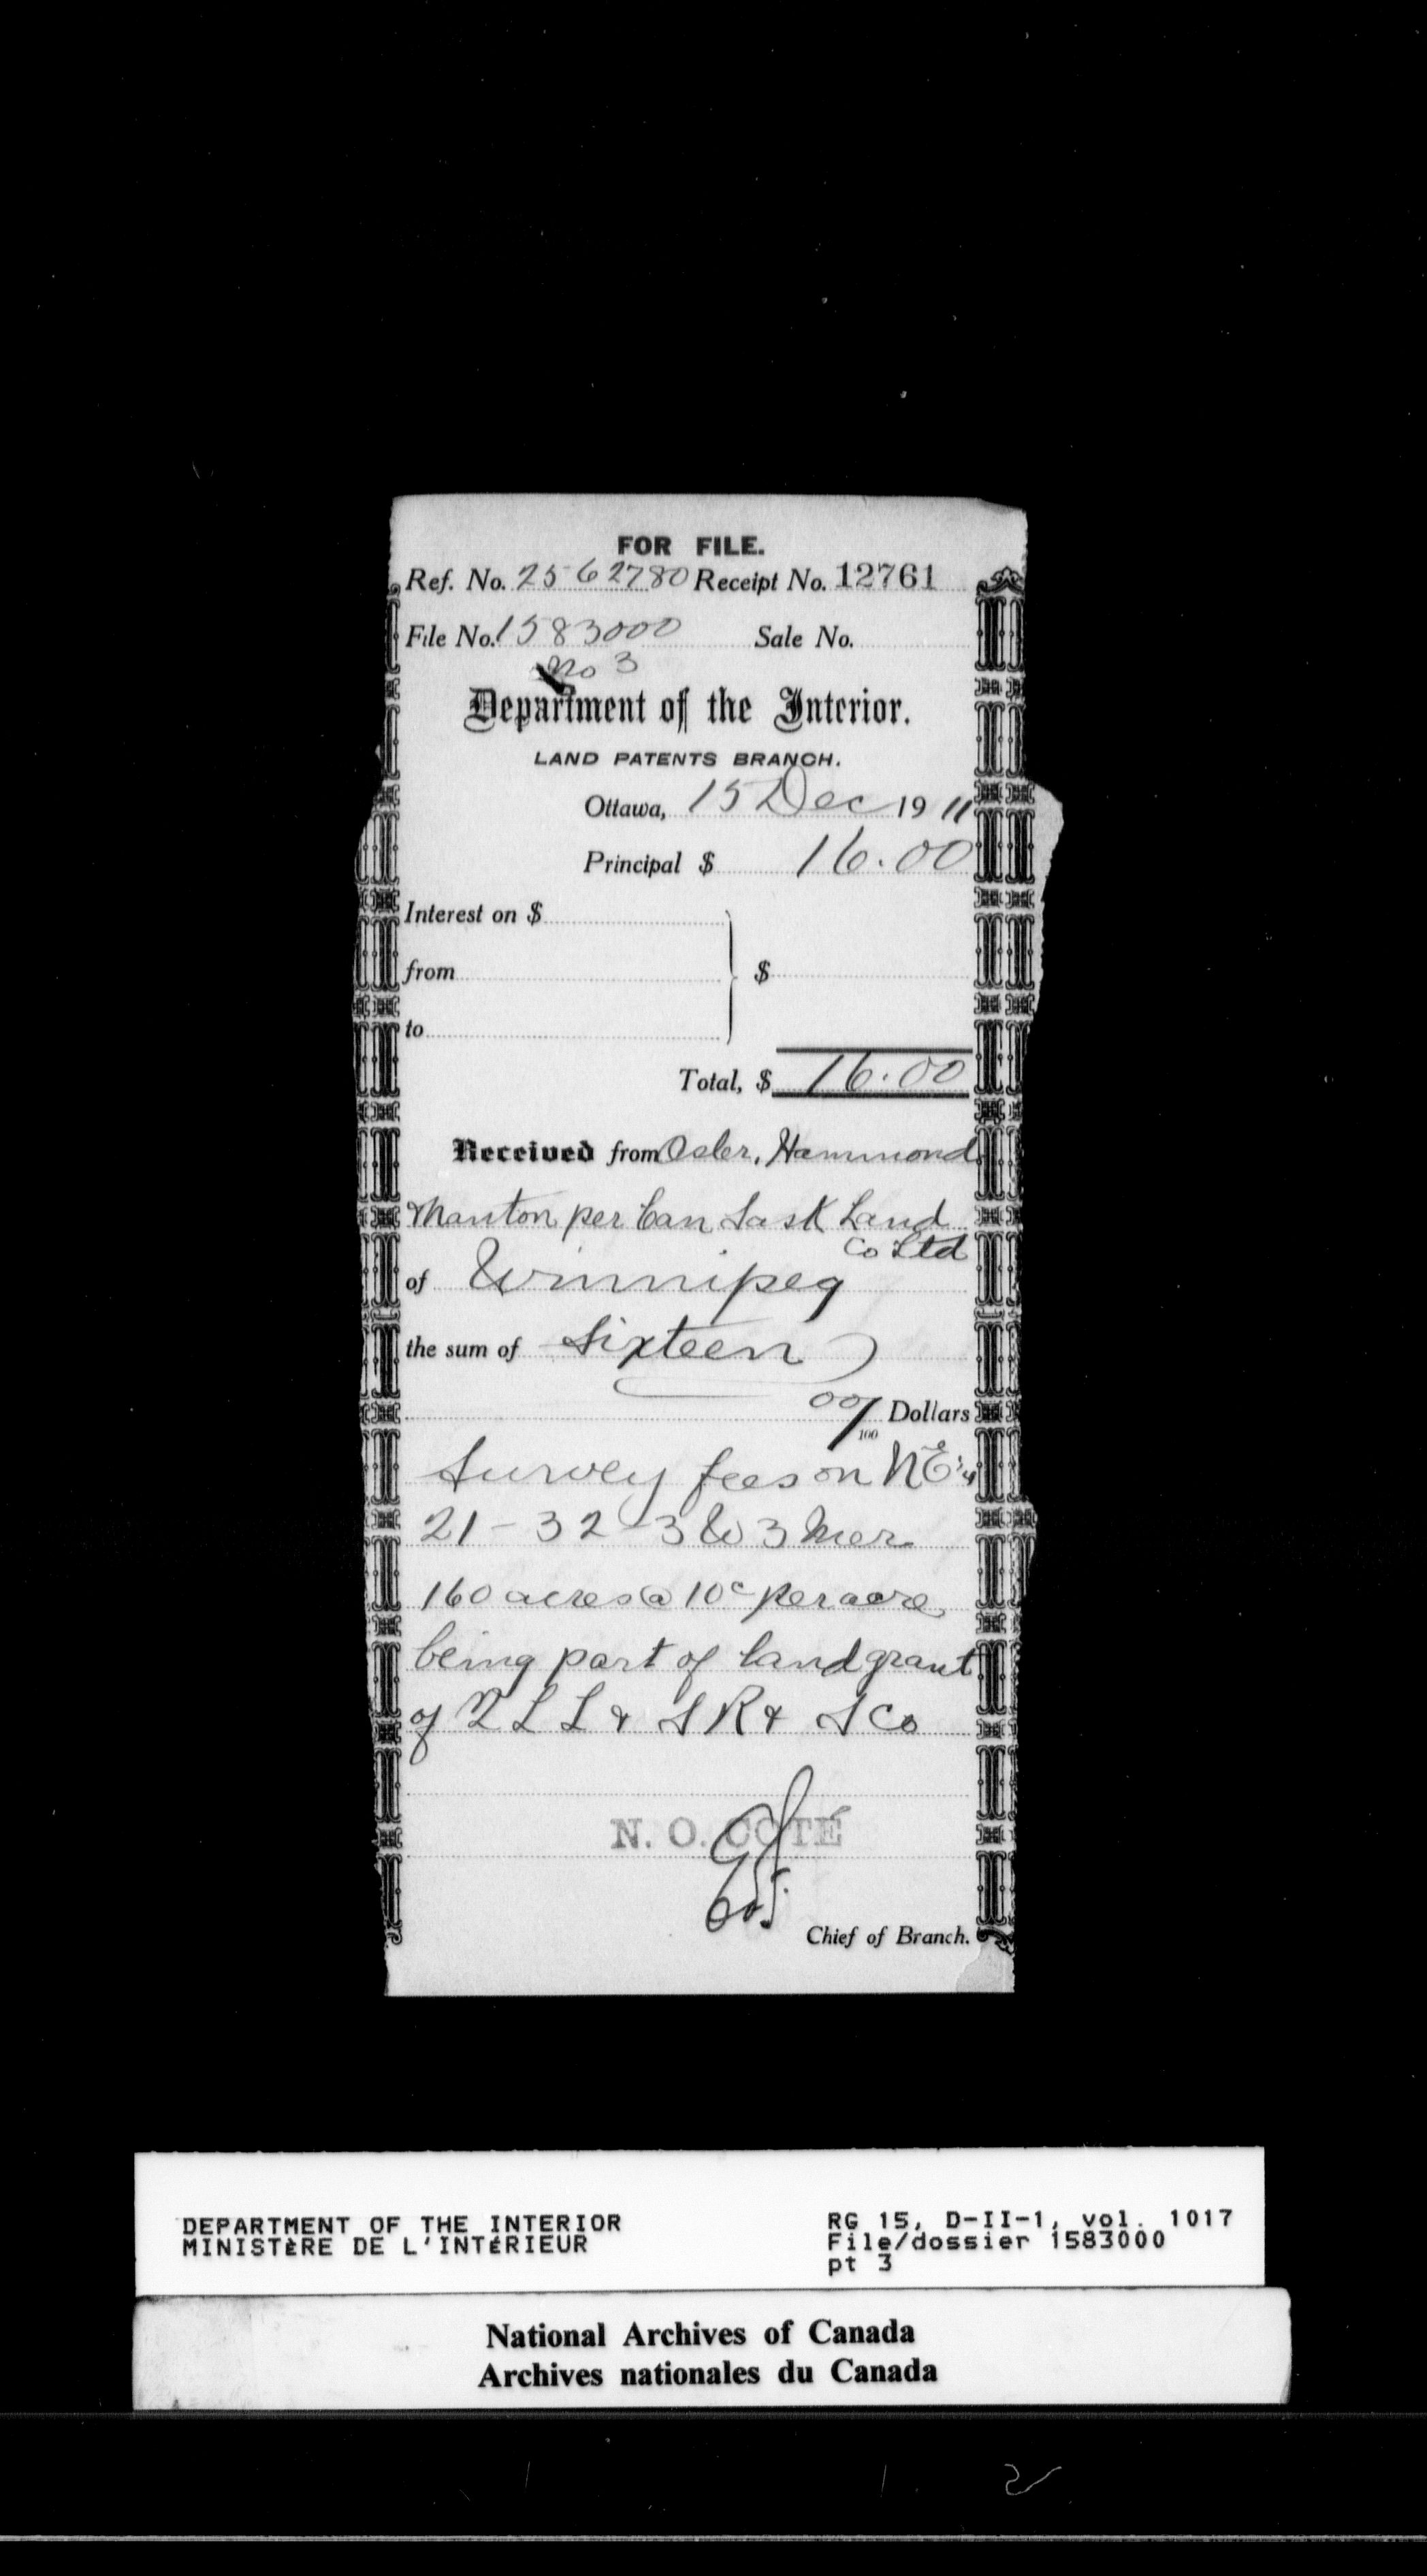 FOR FILE.
Ref. No. 2562780 Receipt No. 12761
File No. 1583000 Sale No.
No 3
Department of the Interior.
LAND PATENTS BRANCH.
Ottawa, 15 Dec 1911
Principal $ 16.00
Interest on $
from $
to
Total, $ 16.00
Received from Osler, Hammond
Nanton per Can Sask Land
Co Ltd
of Winnipeg
the sum of Sixteen
00/100 Dollars
Survey fees on NE 1/4
21-32-3 W 3 Mer
160 acres @ 10c per acre
being part of land grant
of Q L L & S R & S Co
N. O. COTÉ
Chief of Branch.
DEPARTMENT OF THE INTERIOR
MINISTÈRE DE L'INTÉRIEUR
RG 15, D-II-1, vol. 1017
File/dossier 1583000
pt 3
National Archives of Canada
Archives nationales du Canada